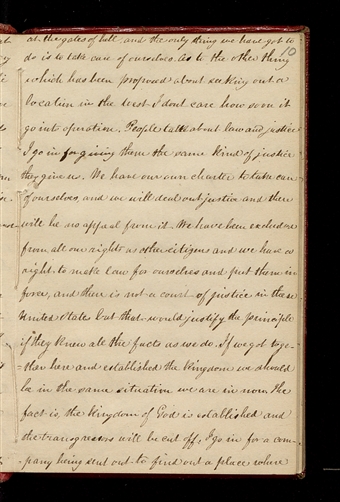 at the gates of hell, and the only thing we have got to
10
do is to take care of ourselves. As to the other thing
which has been proposed about seeking out a
location in the west I dont care how soon it
go into operation. People talk about law and justice
I go in for giving them the same kind of justice
they give us. We have our own charter to take care
of ourselves, and we will deal out justice and there
will be no appeal from it. We have been excluded
from all our rights as other citizens and we have a
right to make law for ourselves and put them in
force, and there is not a court of justice in these
United States but that would justify the principle
if they knew all the facts as we do. If we got toge-
-ther here and established the Kingdom we should
be in the same situation we are in now. The
fact is, the kingdom of God is established and
the transgressors will be cut off; I go in for a com-
pany being sent out to find out a place where